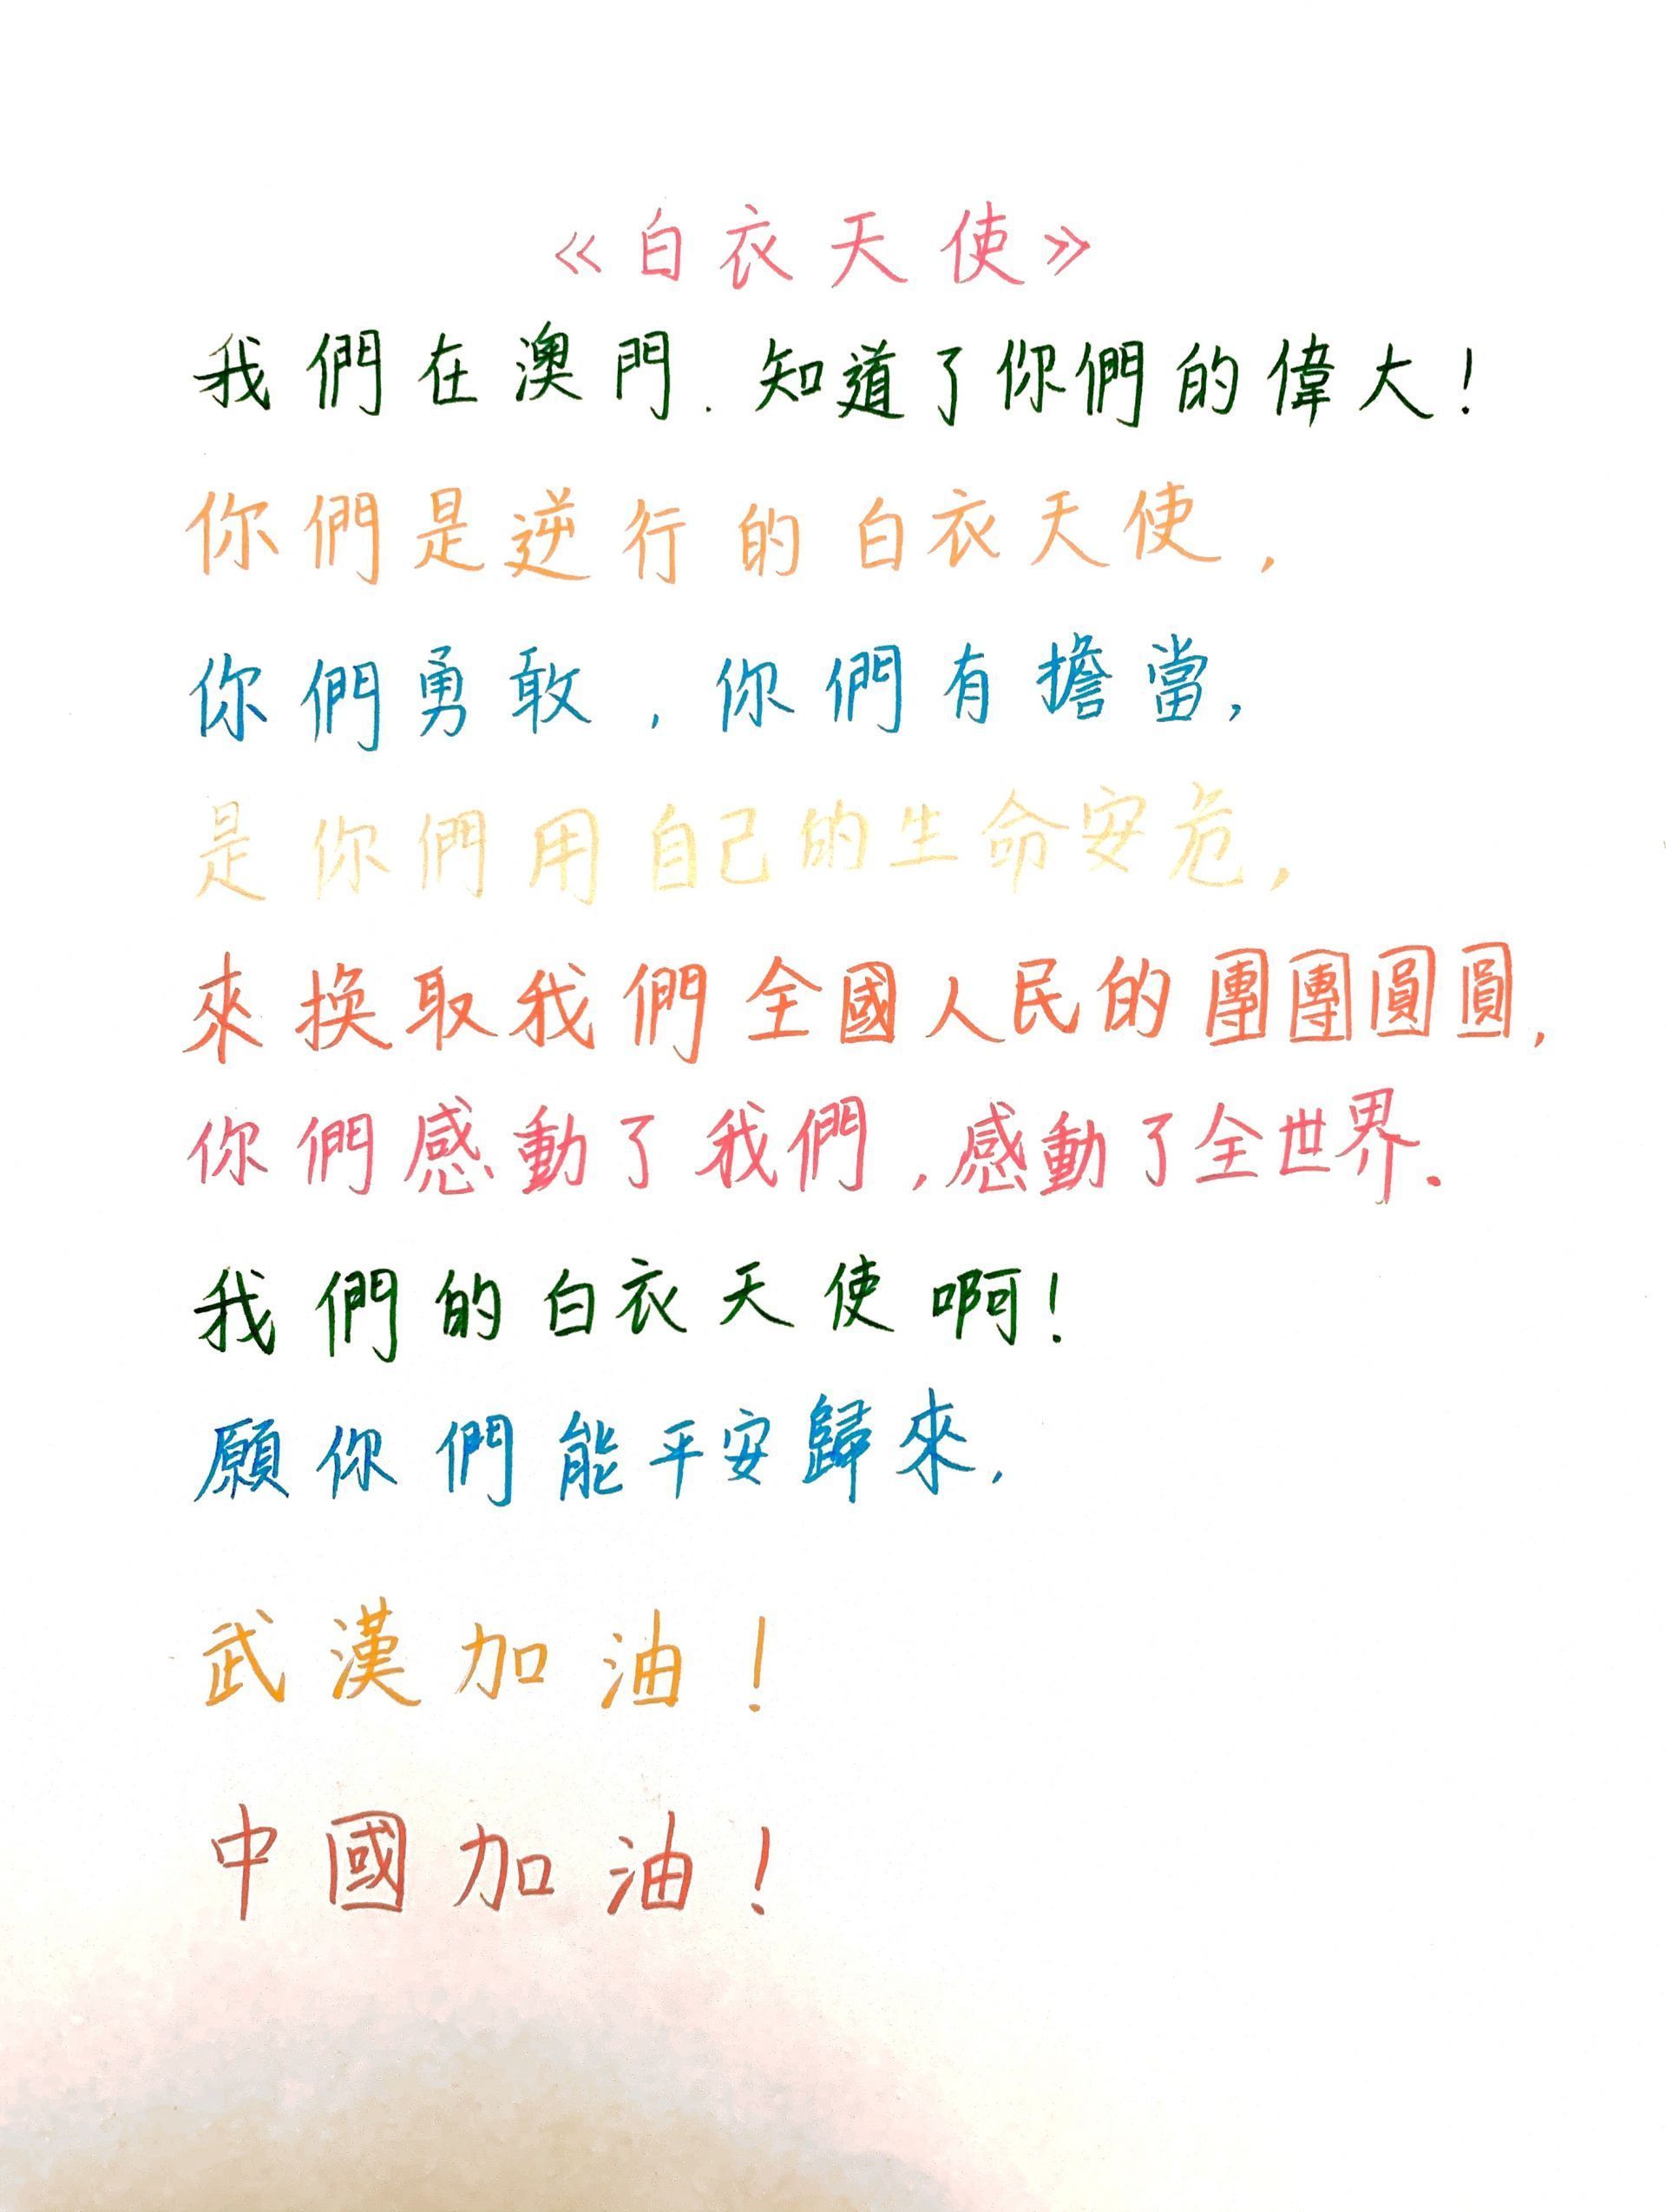 《白衣天使》
我們在澳門.知道了你們的偉大!
你們是逆行的白衣天使,
你們勇敢,你們有擔當,
是你們用自己的生命安危,
來換取我們全國人民的團團圓圓,
你們感動了我們,感動了全世界.
我們的白衣天使啊!
願你們能平安歸來,
武漢加油!
中國加油!